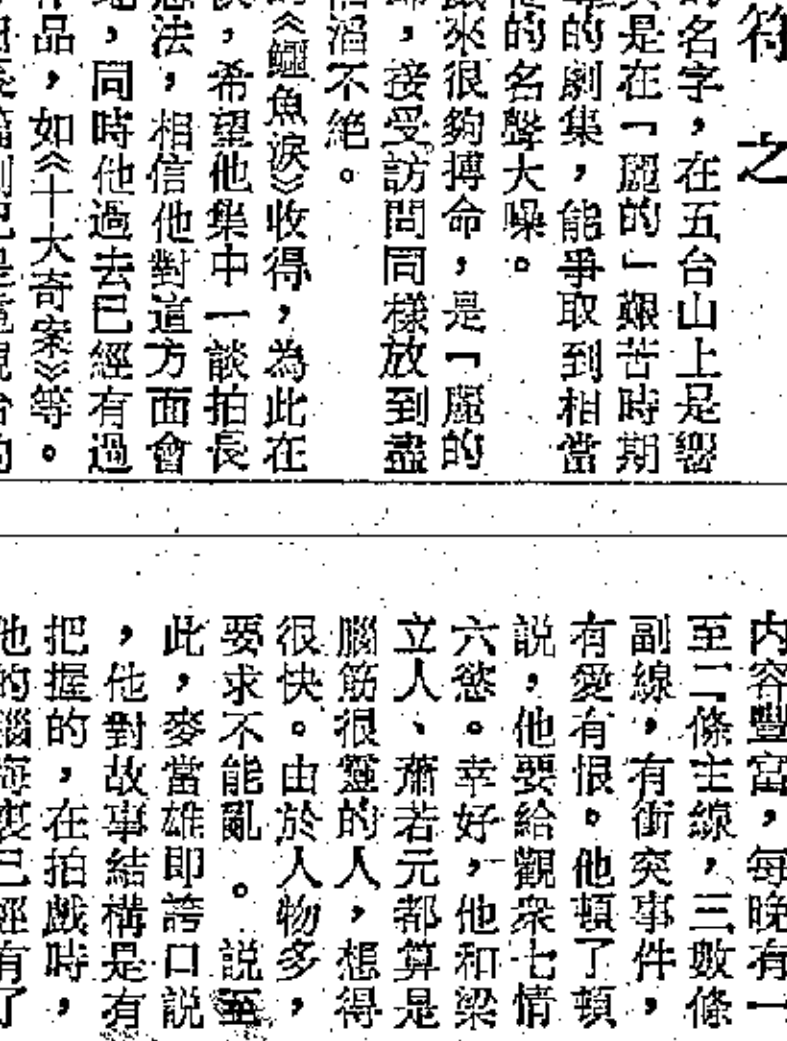 符之
的名字,在五台山上是響
是在「麗的」艱苦時期
的劇集,能爭取到相當
的名聲大噪。
來很夠搏命,是「麗的
,接受訪問同樣放到盡
滔不絕。
《鱷魚淚》收得,為此在
,希望他集中一談拍長
法,相信他對這方面會
,同時他過去已經有過
品,如《十大奇案》等。
內容豐富,每晚有一
至二條主線,三數條
副線,有衝突事件,
有愛有恨。他頓了頓
説,他要給觀衆七情
六慾。幸好,他和梁
立人、蕭若元都算是
腦筋很靈的人,想得
很快。由於人物多,
要求不能亂。説至
此,麥當雄即誇口説
,他對故事結構是有
把握的,在拍戲時,
他的腦海裏已經有了